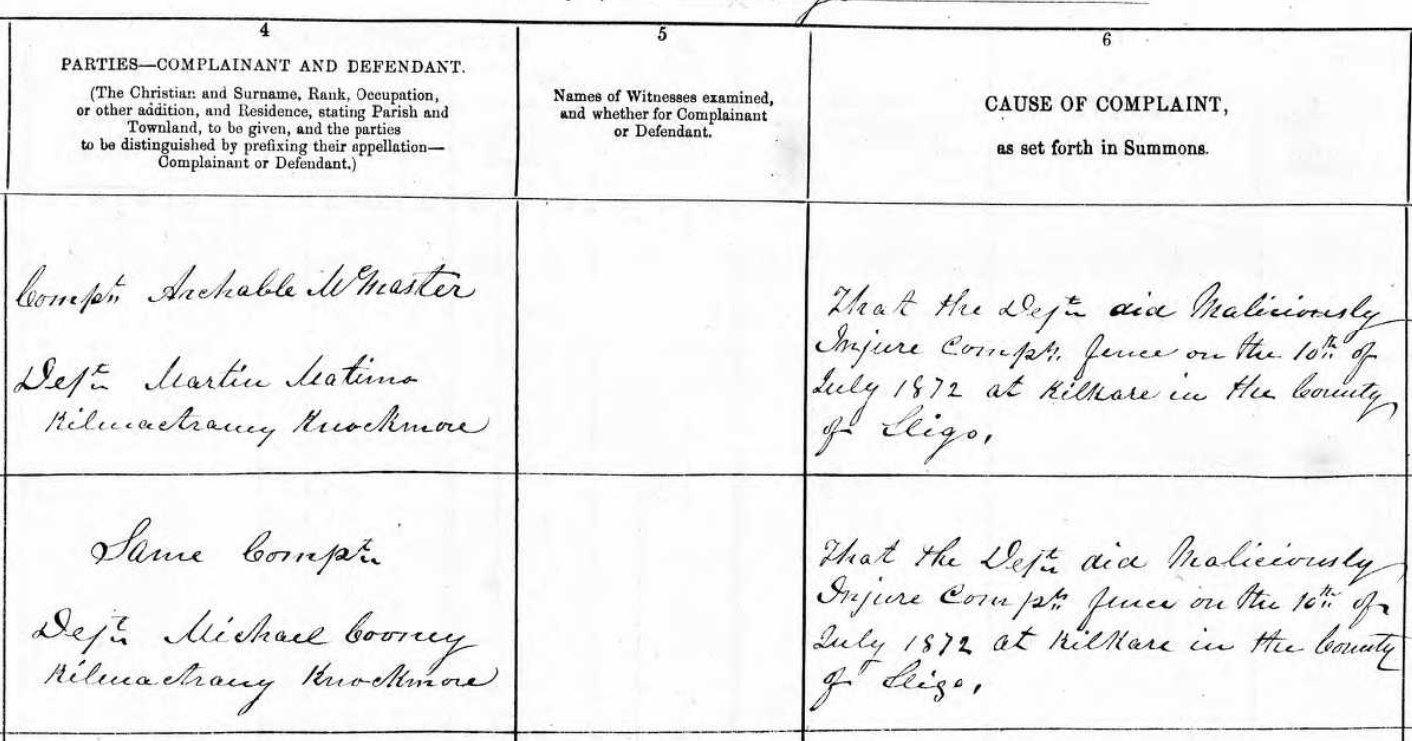 4
PARTIES—COMPLAINANT AND DEFENDANT.
(The Christian and Surname, Rank, Occupation,
or other addition, and Residence, stating Parish and
Townland, to be given, and the parties
to be distinguished by prefixing their appellation—
Complainant or Defendant.)
5
Names of Witnesses examined,
and whether for Complainant
or Defendant.
6
CAUSE OF COMPLAINT,
as set forth in Summons.
Compt Archable McMaster
Deft Martin Matimo
Kilmactrany Knockmore
That the Deft did Maliciously
Injure Compts fence on the 10th of
July 1872 at Kilkare in the County
of Sligo,
Same Compt
Deft Michael Cooney
Kilmactrany Knockmore
That the Deft did Maliciously
Injure Compts fence on the 10th of
July 1872 at Kilkare in the County
of Sligo,